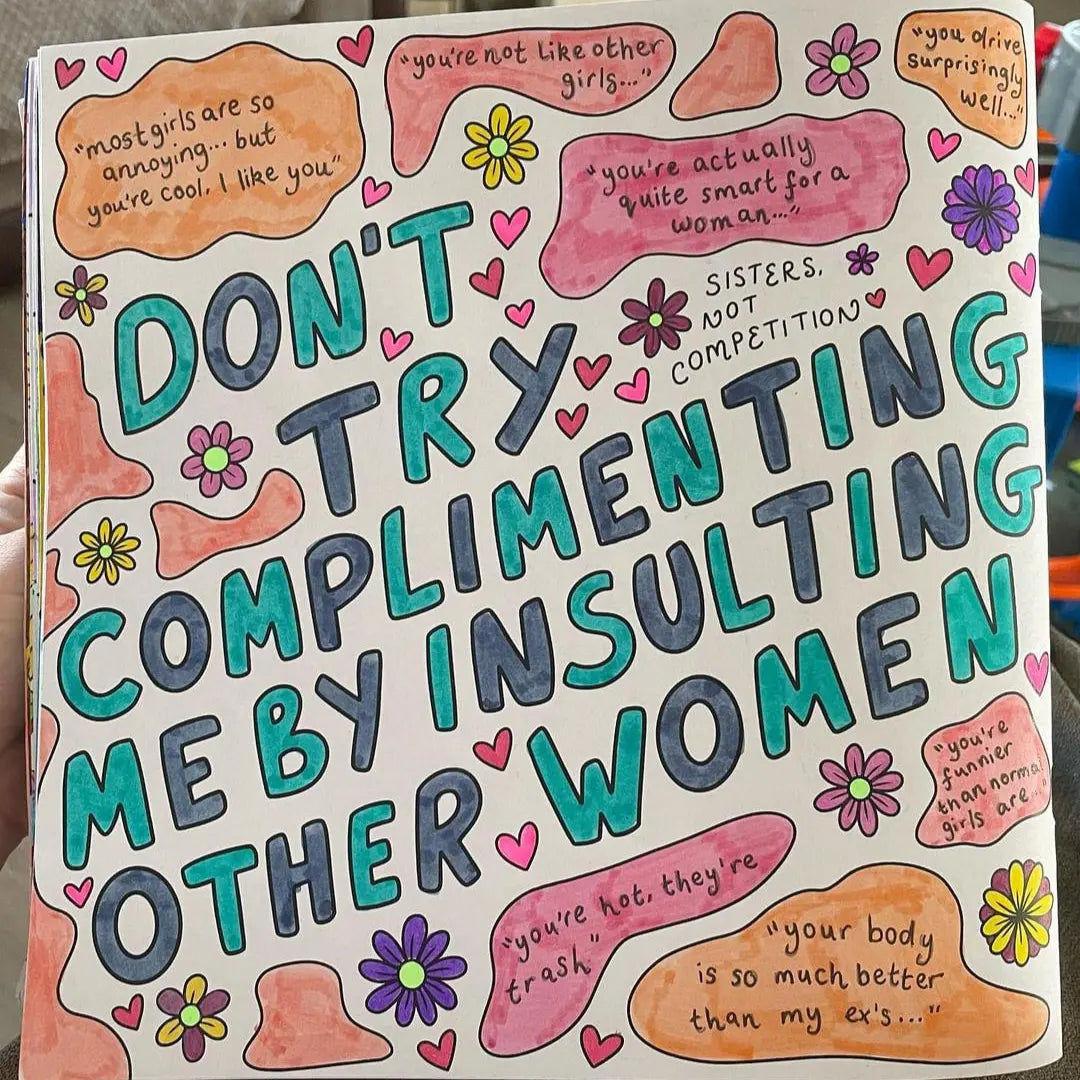 "most girls are so
annoying... but
you're cool, I like you"
"you're not like other
girls..."
"you drive
surprisingly
well..."
"you're actually
quite smart for a
woman..."
SISTERS,
NOT
COMPETITION
DON'T
TRY
COMPLIMENTING
ME BY INSULTING
OTHER WOMEN
"you're
funnier
than normal
girls are..."
"you're hot, they're
trash"
"your body
is so much better
than my ex's..."